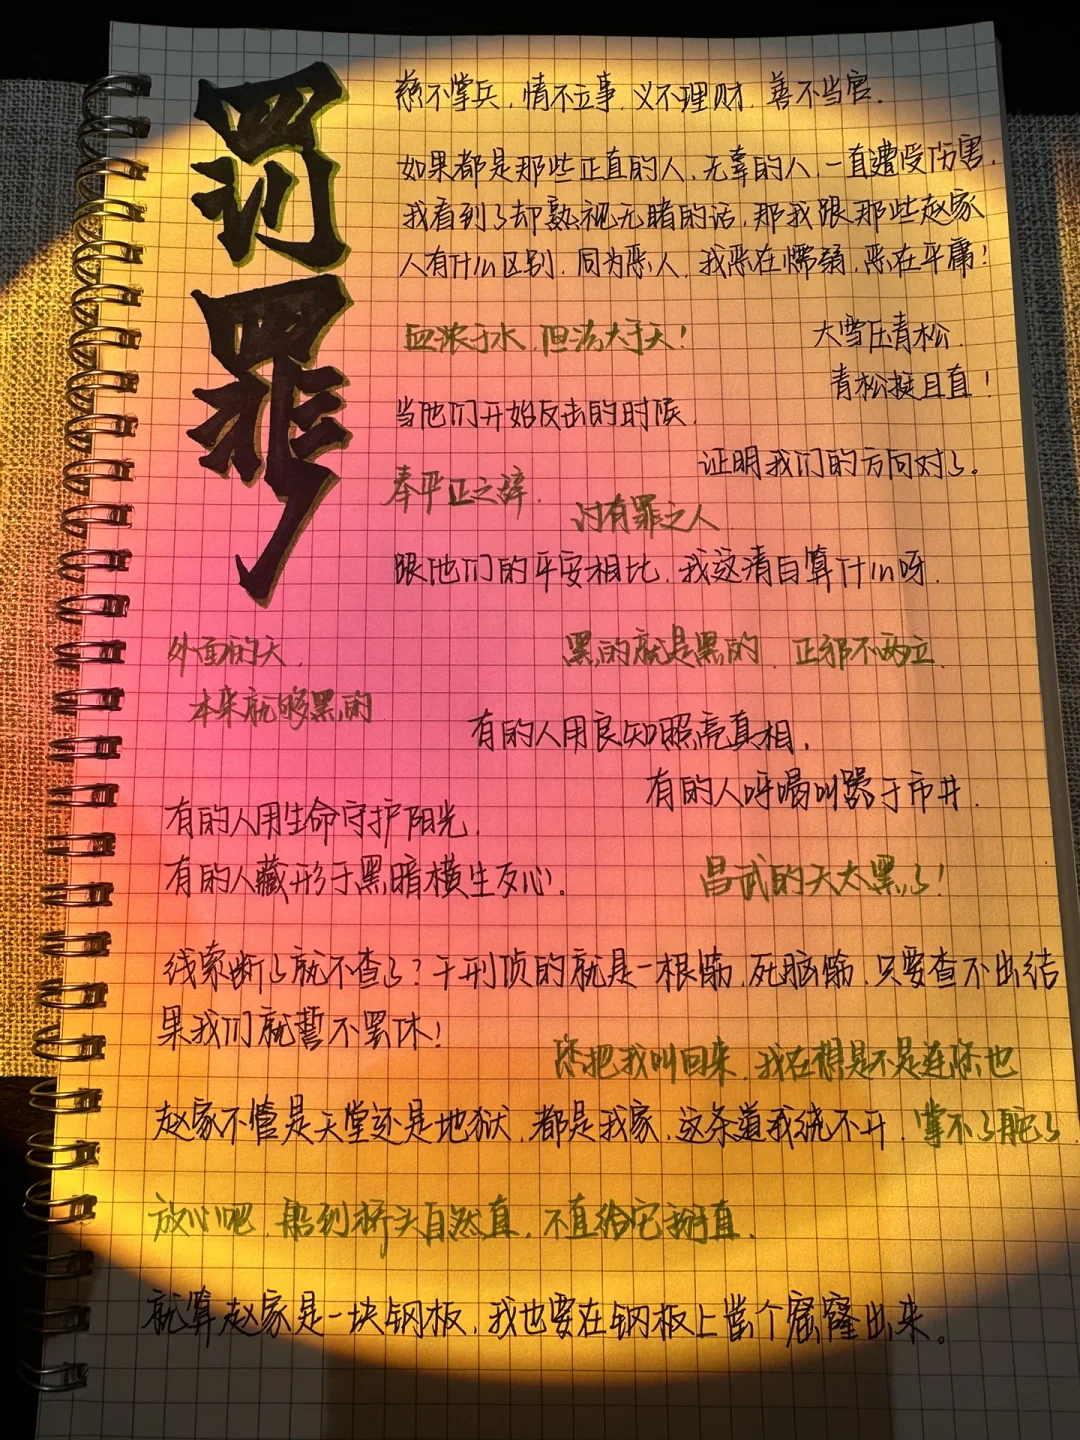 罚罪
慈不掌兵，情不立事，义不理财，善不当官.
如果都是那些正直的人，无辜的人，一直遭受伤害，
我看到了却熟视无睹的话，那我跟那些赵家
人有什么区别，同为恶人，我恶在懦弱，恶在平庸！
血浓于水，但法大于天！
大雪压青松，
青松挺且直！
当他们开始反击的时候，
证明我们的方向对了。
奉平正之辞，
讨有罪之人
跟他们的平安相比，我这清白算什么呀.
外面的天，
本来就够黑的
黑的就是黑的，正邪不两立.
有的人用良知照亮真相，
有的人呼喝叫嚣于市井.
有的人用生命守护阳光，
有的人藏形于黑暗横生反心。
昌武的天太黑了！
线索断了就不查了？干刑侦的就是一根筋，死脑筋，只要查不出结
果我们就誓不罢休！
您把我叫回来，我在想是不是连您也
掌不了舵了
赵家不管是天堂还是地狱，都是我家，这条道我绕不开.
放心吧，船到桥头自然直，不直给它掰直.
就算赵家是一块钢板，我也要在钢板上凿个窟窿出来。